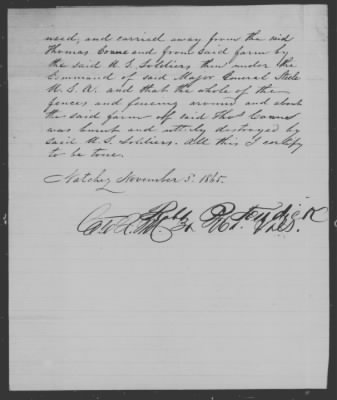 used, and carried away from the said
Thomas and from said farm by
the said U. S. Soldiers then under the
Command of said Major General Steele
U. S. A. and that the whole of the
fences and fencing around and about
the said farm of said Thos
was burnt and utterly destroyed by
said U. S. Soldiers. All this I certify
to be true.
Natchez November 5. 1865.